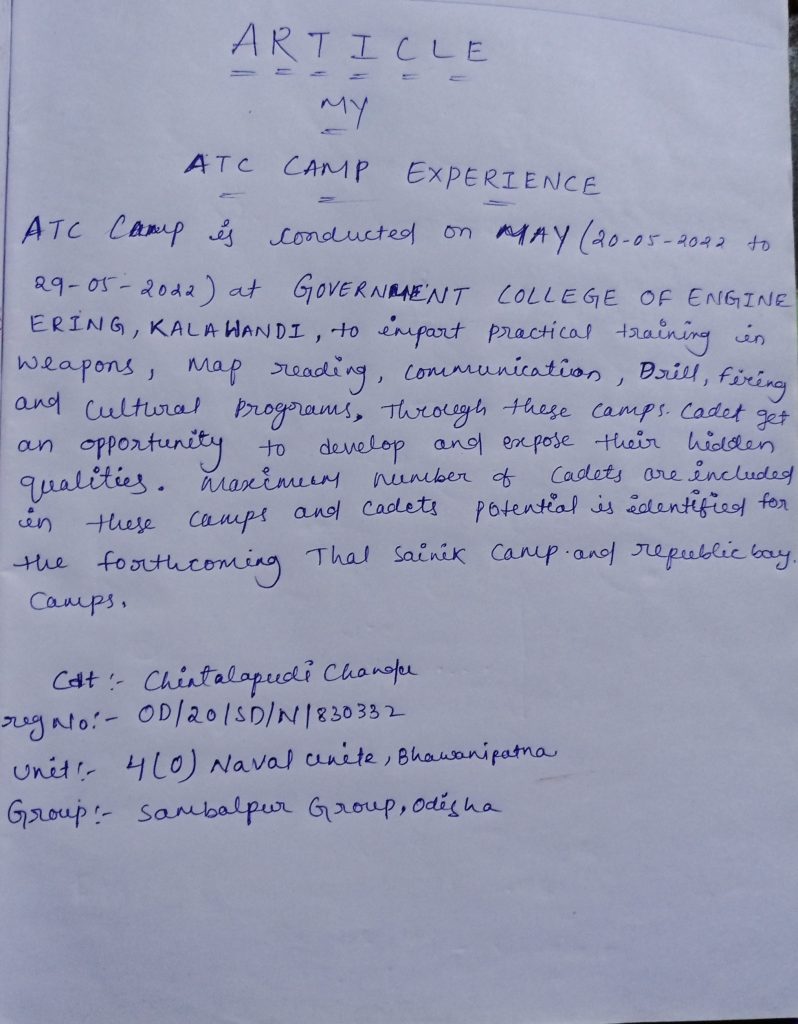 ARTICLE
MY
ATC CAMP EXPERIENCE
ATC Camp is conducted on MAY (20-05-2022 to
29-05-2022) at GOVERNMENT COLLEGE OF ENGINE
ERING, KALAHANDI, to impart practical training in
weapons, Map reading, communication, Drill, firing
and cultural programs. Through these camps. Cadet get
an opportunity to develop and expose their hidden
qualities. Maximum number of Cadets are included
in these camps and cadets potential is identified for
the forthcoming Thal Sainik camp.and republic bay.
Camps.
Cdt :- Chintalapudi
reg No:- OD/20/SD/N/830332
Unit :- 4(O) Naval unite, Bhawanipatna
Group:- Sambalpur Group, Odisha